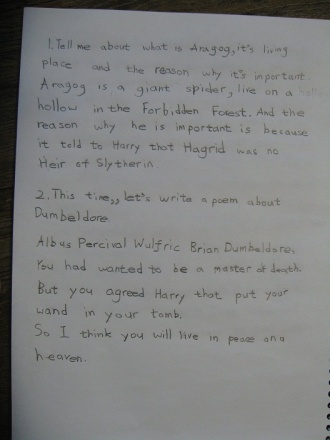 1. Tell me about what is Aragog, it's living
place and the reason why it's important.
Aragog is a giant spider, live on a
hollow in the Forbidden Forest. And the
reason why he is important is because
it told to Harry that Hagrid was no
Heir of Slytherin.
2. This time,, let's write a poem about
Dumbeldore.
Albus Percival Wulfric Brian Dumbeldore.
You had wanted to be a master of death.
But you agreed Harry that put your
wand in your tomb.
So I think you will live in peace on a
heaven.